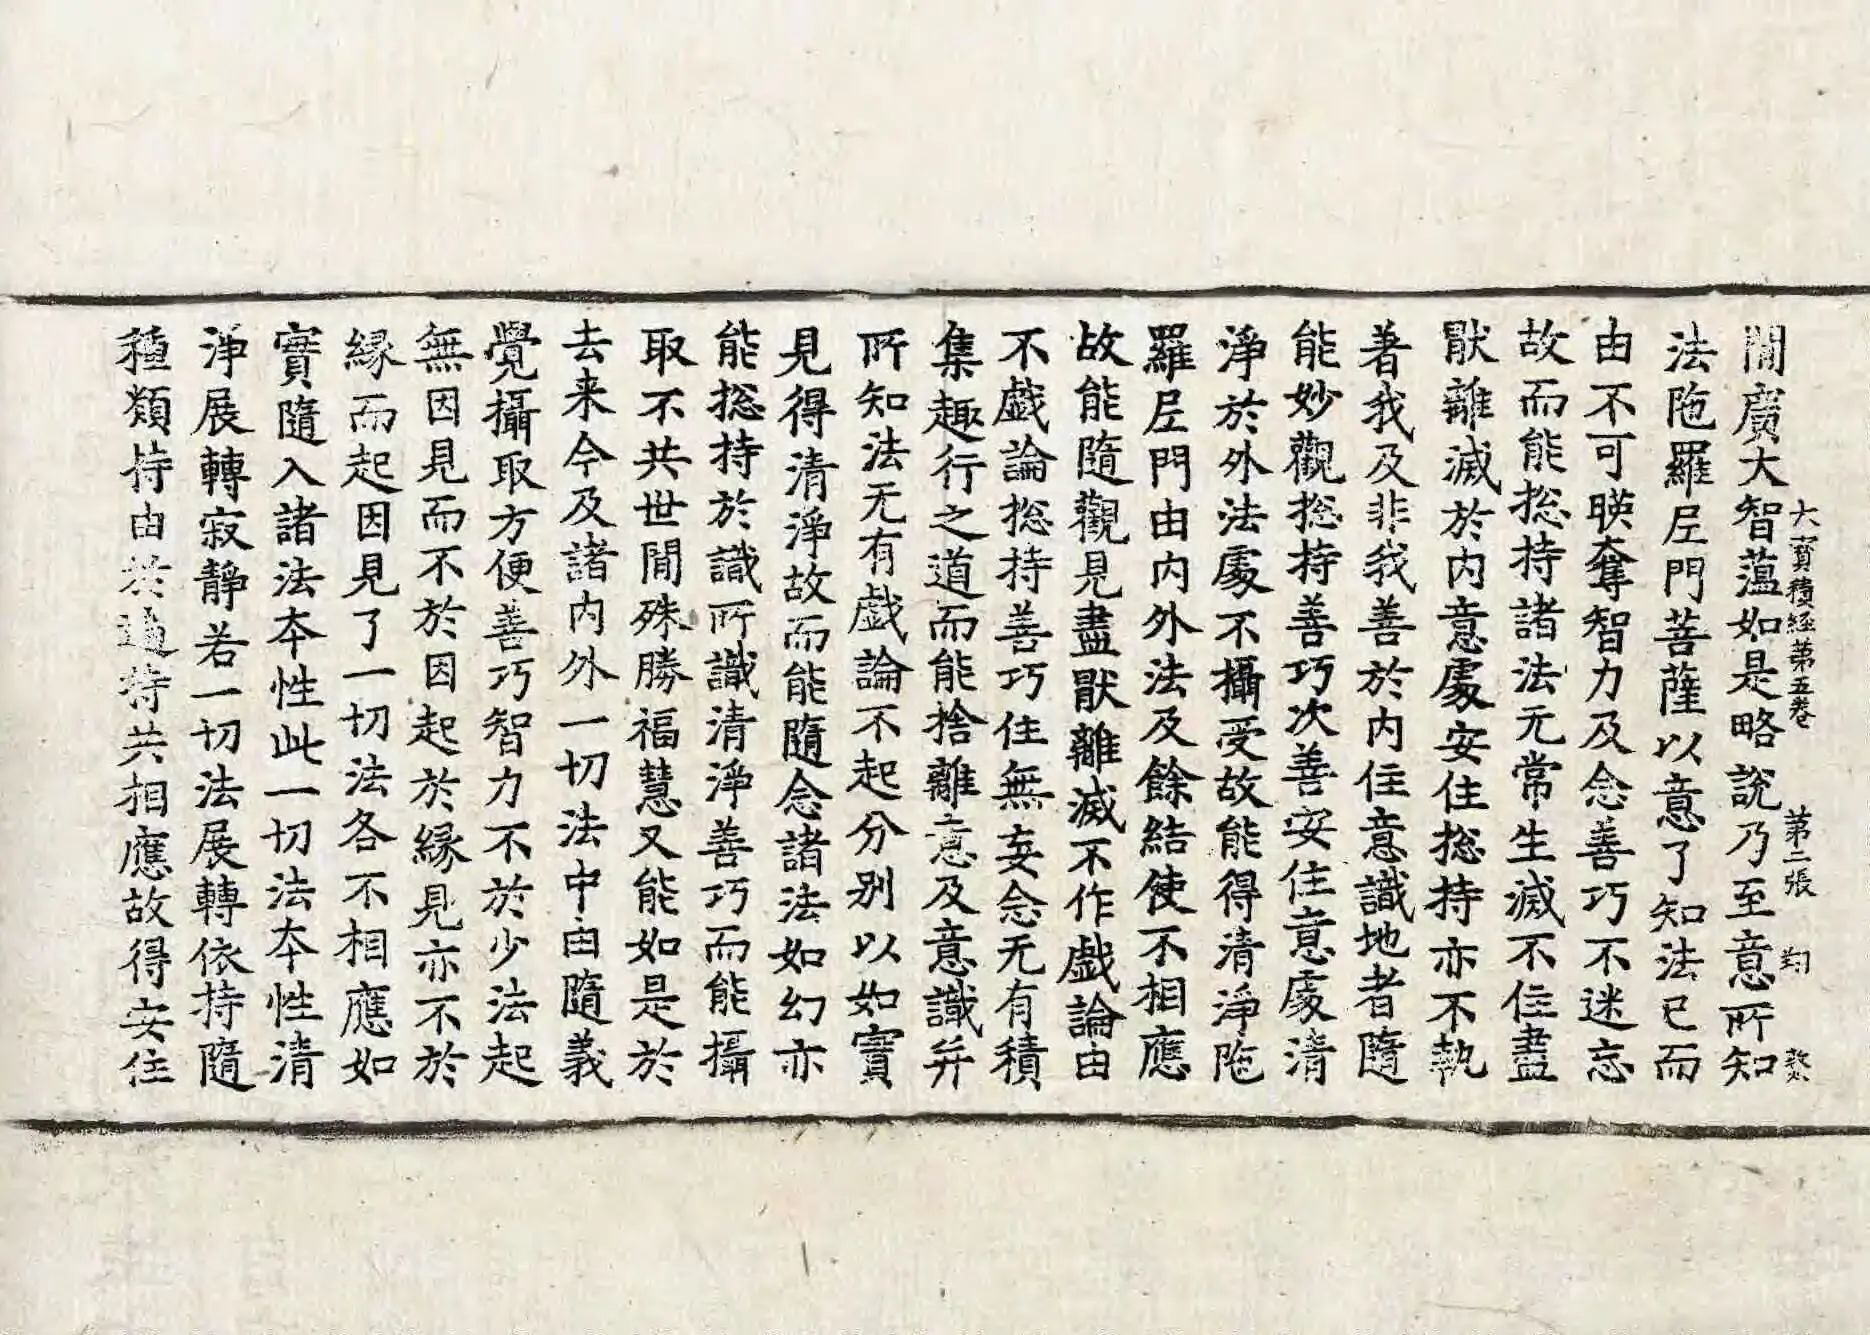 大寶積經第五卷　第二張　翔
聞廣大智薀如是略說乃至意所知
法陁羅尼門菩薩以意了知法已而
由不可暎奪智力及念善巧不迷忘
故而能捴持諸法无常生滅不住盡
猒離滅於內意處安住捴持亦不執
著我及非我善於內住意識地者隨
能妙觀捴持善巧次善安住意處清
淨於外法處不攝受故能得清淨陁
羅尼門由內外法及餘結使不相應
故能隨觀見盡猒離滅不作戲論由
不戲論捴持善巧住無妄念无有積
集趣行之道而能捨離意及意識并
所知法无有戲論不起分別以如實
見得清淨故而能隨念諸法如幻亦
能捴持於識所識清淨善巧而能攝
取不共世間殊勝福慧又能如是於
去来今及諸內外一切法中由隨義
覺攝取方便善巧智力不於少法起
無因見而不於因起於緣見亦不於
緣而起因見了一切法各不相應如
實隨入諸法本性此一切法本性清
淨展轉寂靜若一切法展轉依持隨
種類持由於遍持共相應故得安住